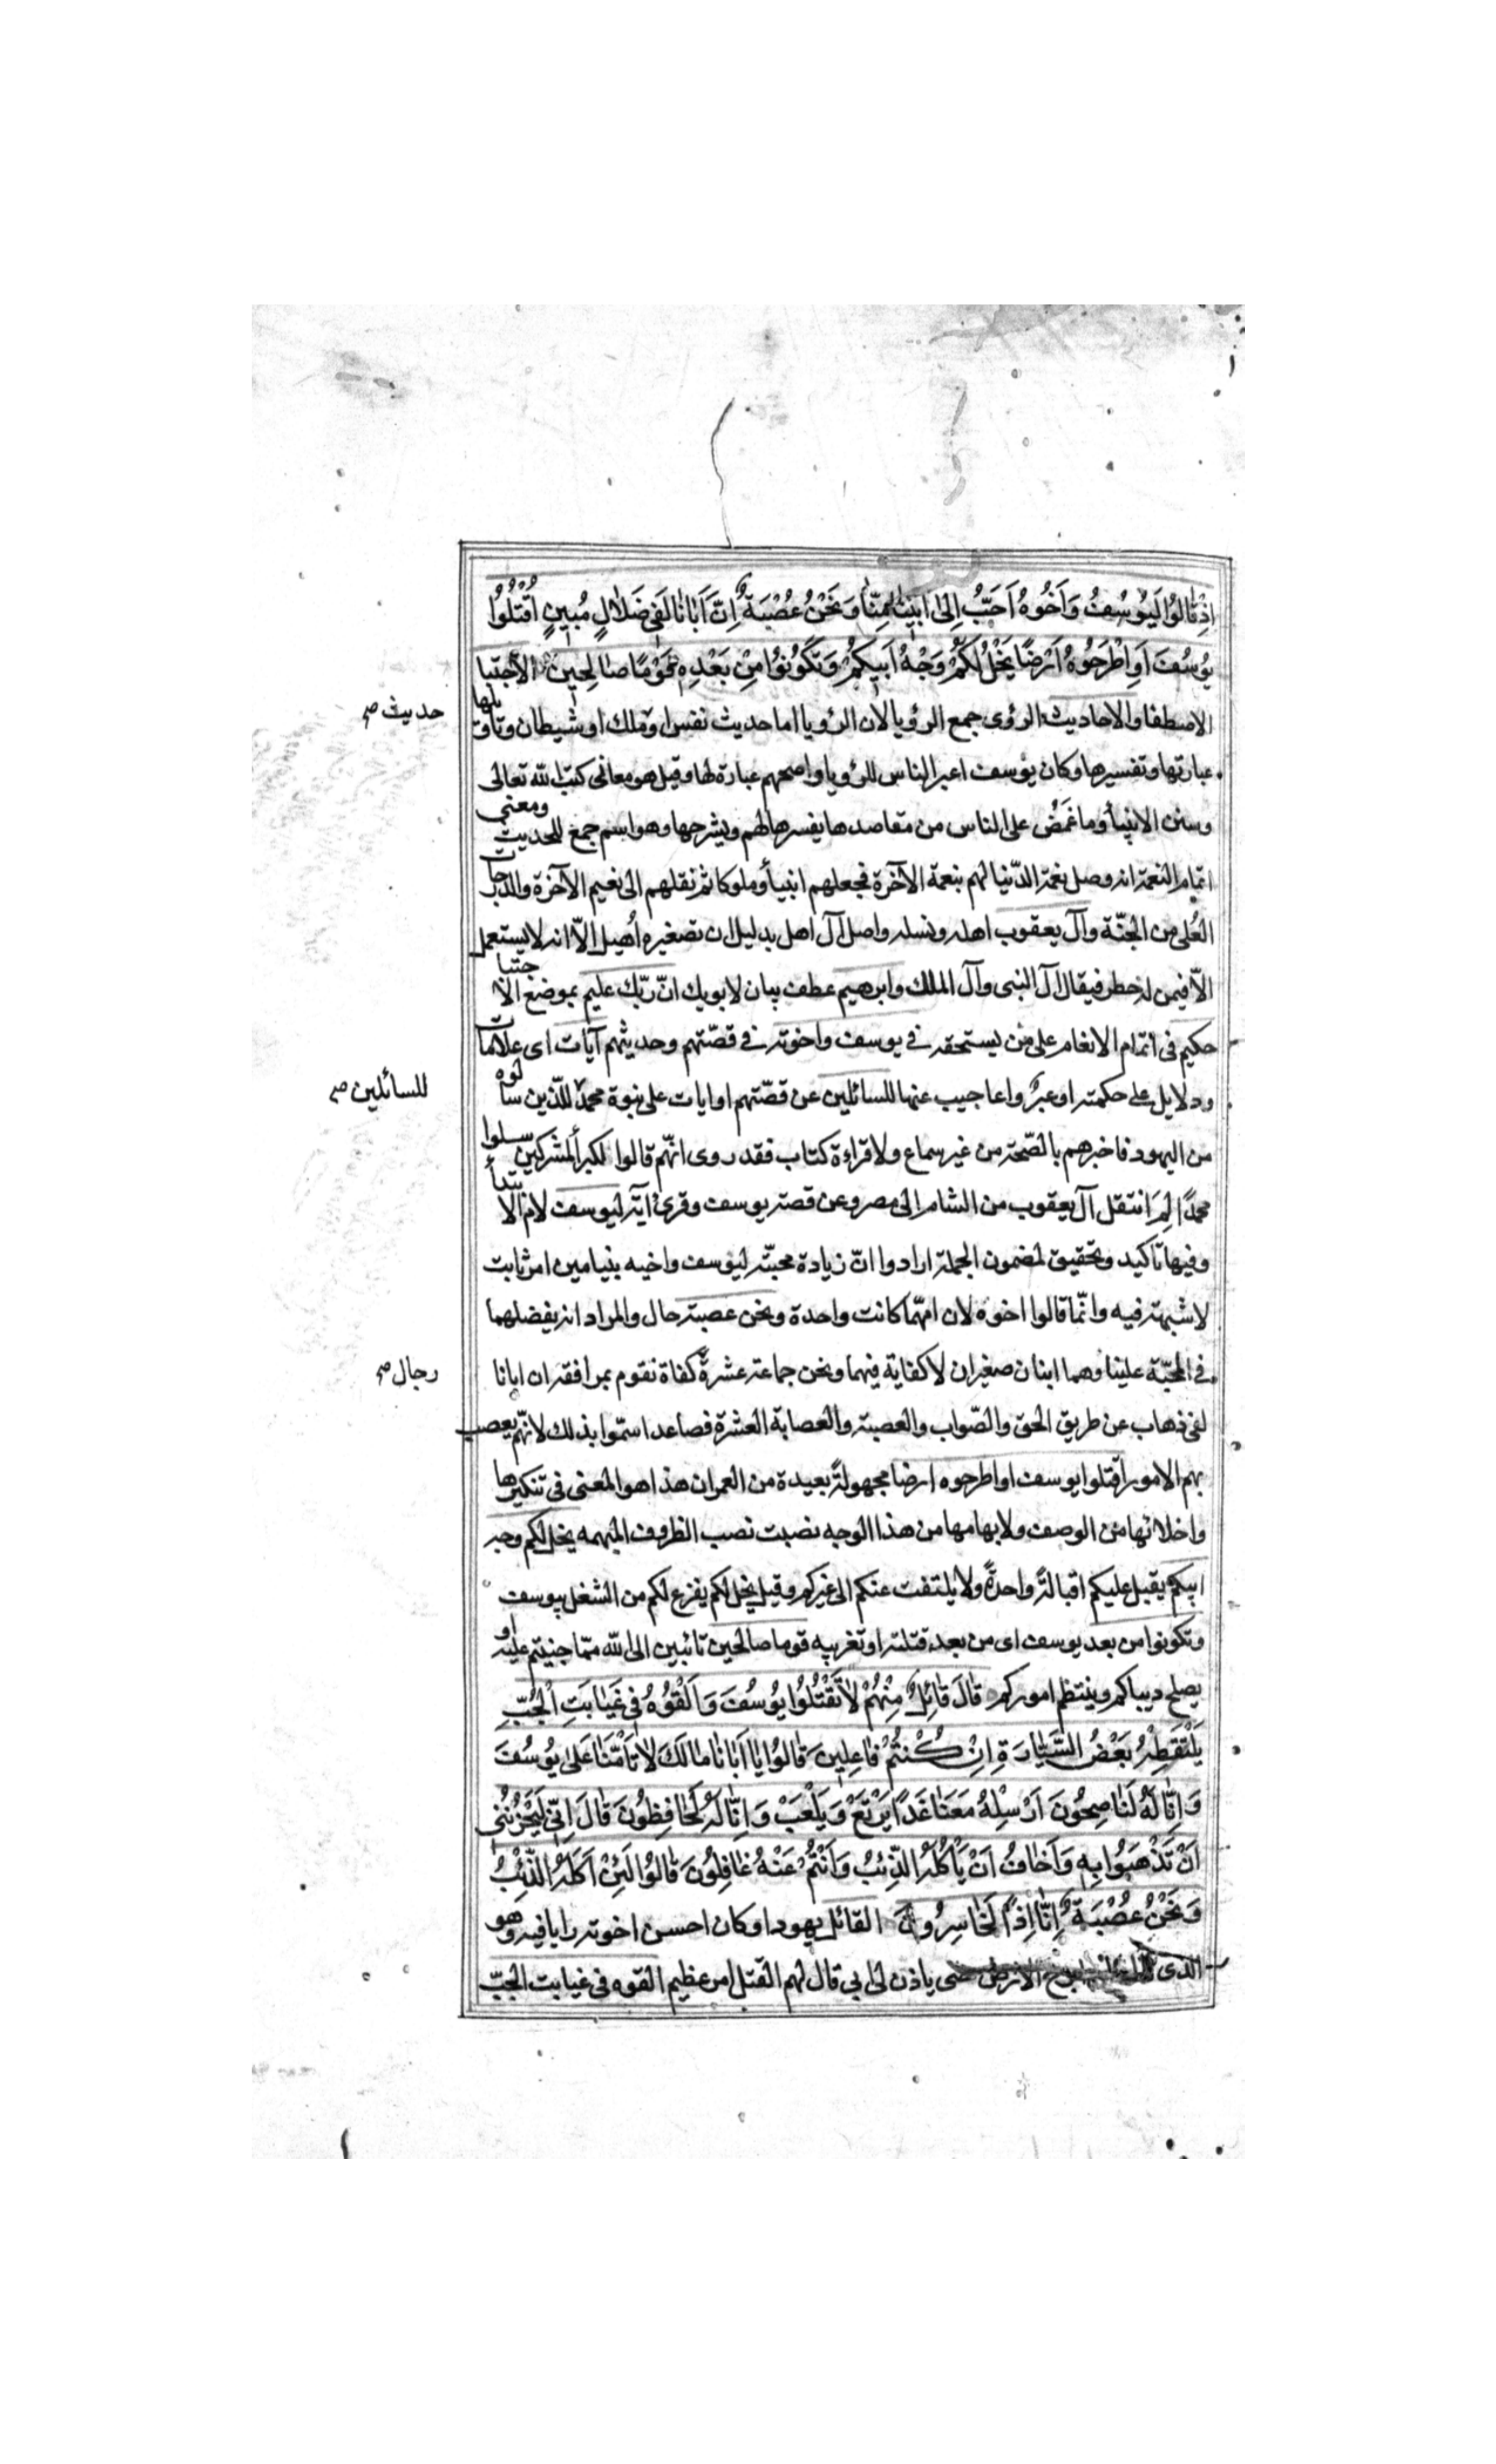 اِذْ قٰالُوا لَيُوسُفُ وَاَخُوهُ اَحَبُّ اِلىٰ اَبينٰا مِنّٰا وَنَحْنُ عُصْبَةٌ اِنَّ اَبٰانٰا لَفى ضَلاٰلٍ مُبينٍ اُقْتُلُوا
يُوسُفَ اَوِ اطْرَحُوهُ اَرْضًا يَخْلُ لَكُمْ وَجْهُ اَبيكُمْ وَتَكُونُوا مِنْ بَعْدِهِ قَوْمًا صٰالِحينَ الاجتبا
الاصطفا والاحاديث الرؤى جمع الرؤيا لان الرؤيا اما حديث نفس او ملك او شيطان وتاويلها
حديث صح
عبارتها وتفسيرها وكان يوسف اعبر الناس للرؤيا واصحهم عبارة لها وقيل هو معانى كتب الله تعالى
وسنن الانبيأ وما غَمَضَ على الناس من مقاصدها يفسرها لهم ويشرحها وهو اسم جمع للحديث ومعنى
اتمام النعمة انه وصل نعمة الدّنيا لهم بنعمة الآخرة فجعلهم انبيأ وملوكا ثم نقلهم الى نعيم الآخرة والدرجات
العُلى من الجنّة وآل يعقوب اهله ونسله واصل آل اهل بدليل ان تصغيره أهيل الاّ انه لا يستعمل
الاّ فيمن له خطر فيقال آل النبى وآل الملك وابرهيم عطف بيان لابويك انّ ربّك عليم بموضع الاجتبا
حكيم فى اتمام الانعام على من يستحقه فى يوسف واخوته فى قصّتهم وحديثهم آيات اى علامات
ودلايل على حكمته او عبرٌ واعاجيب عنها للسائلين عن قصّتهم او ايات على نبوة محمد للّذين سألوه
للسائلين صح
من اليهود فاخبرهم بالصّحة من غير سماع ولا قراءة كتاب فقد روى انّهم قالوا لكبرأ المشركين سلوا
محمدًا لِمَ انتقل آل يعقوب من الشام الى مصر وعن قصة يوسف وقرئ آية ليوسف لام الابتدأ
وفيها تاكيد وتحقيق لمضمون الجملة ارادوا انّ زيادة محبّته ليوسف واخيه بنيامين امر ثابت
لا شبهة فيه وانّما قالوا اخوه لان امّهما كانت واحدة ونحن عصبة حال والمراد انه يفضلهما
فى المحبّة علينا وهما ابنان صغيران لا كفاية فيهما ونحن جماعة عشرة كفاة نقوم بمرافقه ان ابانا
رجال صح
لفى ذهاب عن طريق الحق والصّواب والعصبة والعصابة العشرة فصاعدا سمّوا بذلك لانّهم يعصب
بهم الامور اقتلوا يوسف او اطرحوه ارضا مجهولة بعيدة من العمران هذا هو المعنى فى تنكيرها
واخلائها من الوصف ولابهامها من هذا الوجه نصبت نصب الظروف المبهمه يخل لكم وجه
ابيكم يقبل عليكم اقبالة واحدة ولا يلتفت عنكم الى غيركم وقيل يخل لكم يفزع لكم من الشغل بيوسف
وتكونوا من بعد يوسف اى من بعد قتله او تغريبه قوما صالحين تائبين الى الله ممّا جنيتم عليه او
يصلح ديباكم وينتظم اموركم قٰالَ قٰائِلٌ مِنْهُمْ لاٰ تَقْتُلُوا يُوسُفَ وَاَلْقُوهُ فى غَيٰابَتِ الْجُبِّ
يَلْتَقِطْهُ بَعْضُ السَّيّٰارَةِ اِنْ كُنْتُمْ فٰاعِلينَ قٰالُوا يٰا اَبٰانٰا مٰا لَكَ لاٰ تَاْمَنّٰا عَلىٰ يُوسُفَ
وَاِنّٰا لَهُ لَنٰاصِحُونَ اَرْسِلْهُ مَعَنٰا غَدًا يَرْتَعْ وَيَلْعَبْ وَاِنّٰا لَهُ لَحٰافِظُونَ قٰالَ اِنّى لَيَحْزُنُنى
اَنْ تَذْهَبُوا بِهِ وَاَخٰافُ اَنْ يَاْكُلَهُ الذِّئْبُ وَاَنْتُمْ عَنْهُ غٰافِلُونَ قٰالُوا لَئِنْ اَكَلَهُ الذِّئْبُ
وَنَحْنُ عُصْبَةٌ اِنّٰا اِذًا لَخٰاسِرُونَ القائل يهودا وكان احسن اخوته رايا فيه وهو
الذى قال الارض حتى ياذن لى ابى قال لهم القتل امر عظيم القوه فى غيابت الجبّ